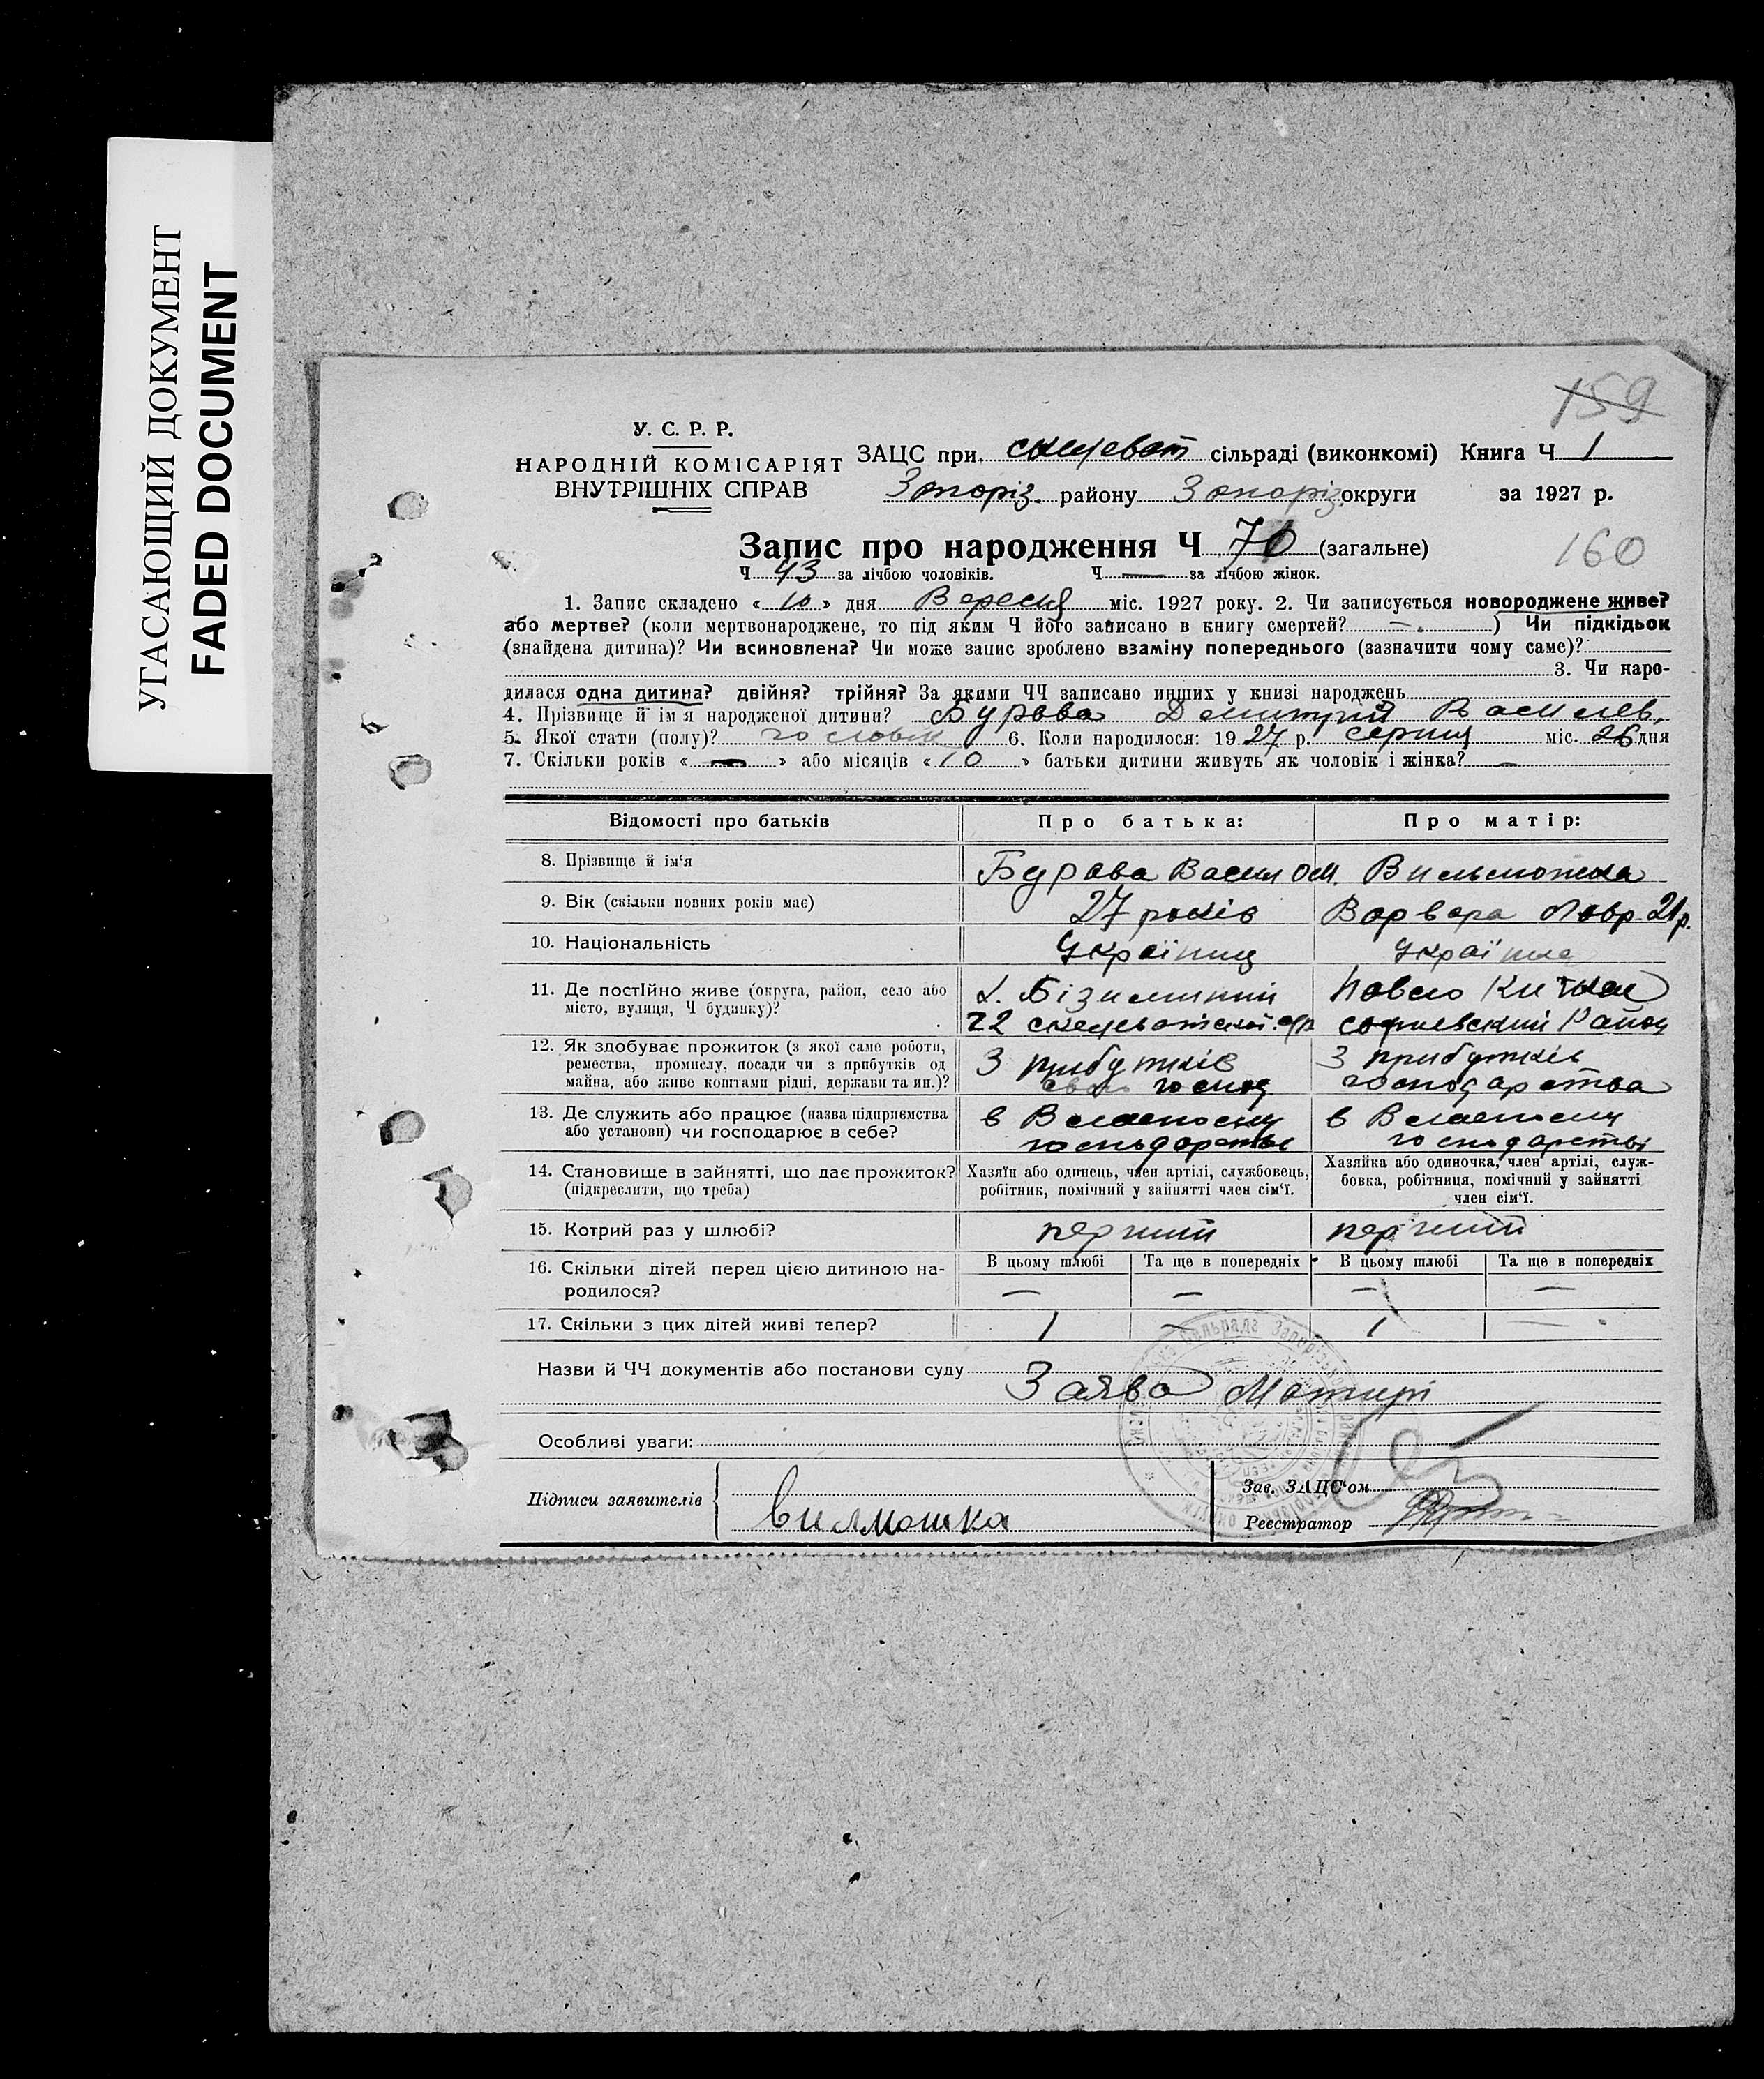 УГАСАЮЩИЙ ДОКУМЕНТ
FADED DOCUMENT
159
У. С. Р. Р.
НАРОДНІЙ КОМІСАРІЯТ
ВНУТРІШНІХ СПРАВ
ЗАЦС при скелеват сільраді (виконкомі) Книга Ч 1
Запоріз. району Запоріз. округи за 1927 р.
Запис про народження Ч 70 (загальне)
160
Ч 43 за лічбою чоловіків. Ч — за лічбою жінок.
1. Запис складено « 10 » дня Вересня міс. 1927 року. 2. Чи записується новороджене живе?
або мертве? (коли мертвонароджене, то під яким Ч його записано в книгу смертей? — ) Чи підкідьок
(знайдена дитина)? Чи всиновлена? Чи може запис зроблено взаміну попереднього (зазначити чому саме)?
3. Чи наро-
дилася одна дитина? двійня? трійня? За якими ЧЧ записано инших у книзі народжень
4. Прізвище й ім'я народженої дитини? Бурава Демитрій Василев,
5. Якої стати (полу)? 6. Коли народилося: 1927 р. серпня міс. 26 дня
7. Скільки років « — » або місяців « 10 » батьки дитини живуть як чоловік і жінка? —
Відомості про батьків Про батька: Про матір:
8. Прізвище й ім'я Бурава Васил Ом. Вильможка
9. Вік (скільки повних років має) 27 років Варвара Лавр 21 р.
10. Національність Українц Українка
11. Де постійно живе (округа, район, село або
місто, вулиця, Ч будинку)?
12. Як здобуває прожиток (з якої саме роботи,
ремества, промислу, посади чи з прибутків од
майна, або живе коштами рідні, держави та ин.)?
З прибутків свого господ
З прибутків господарства
13. Де служить або працює (назва підприємства
або установи) чи господарює в себе?
в Власносму господарстві
в Власносму господарстві
14. Становище в зайнятті, що дає прожиток?
(підкреслити, що треба)
Хазяїн або одинець, член артілі, службовець,
робітник, помічний у зайнятті член сім'ї.
Хазяйка або одиночка, член артілі, служ-
бовка, робітниця, помічний у зайнятті
член сім'ї.
15. Котрий раз у шлюбі? перший перший
16. Скільки дітей перед цією дитиною на-
родилося?
В цьому шлюбі Та ще в попередніх В цьому шлюбі Та ще в попередніх
— — — —
17. Скільки з цих дітей живі тепер? 1 — 1 —
Назви й ЧЧ документів або постанови суду
Заява Матирі
Особливі уваги:
Підписи заявителів вилмошка
Зав. ЗАЦС'ом
Реєстратор